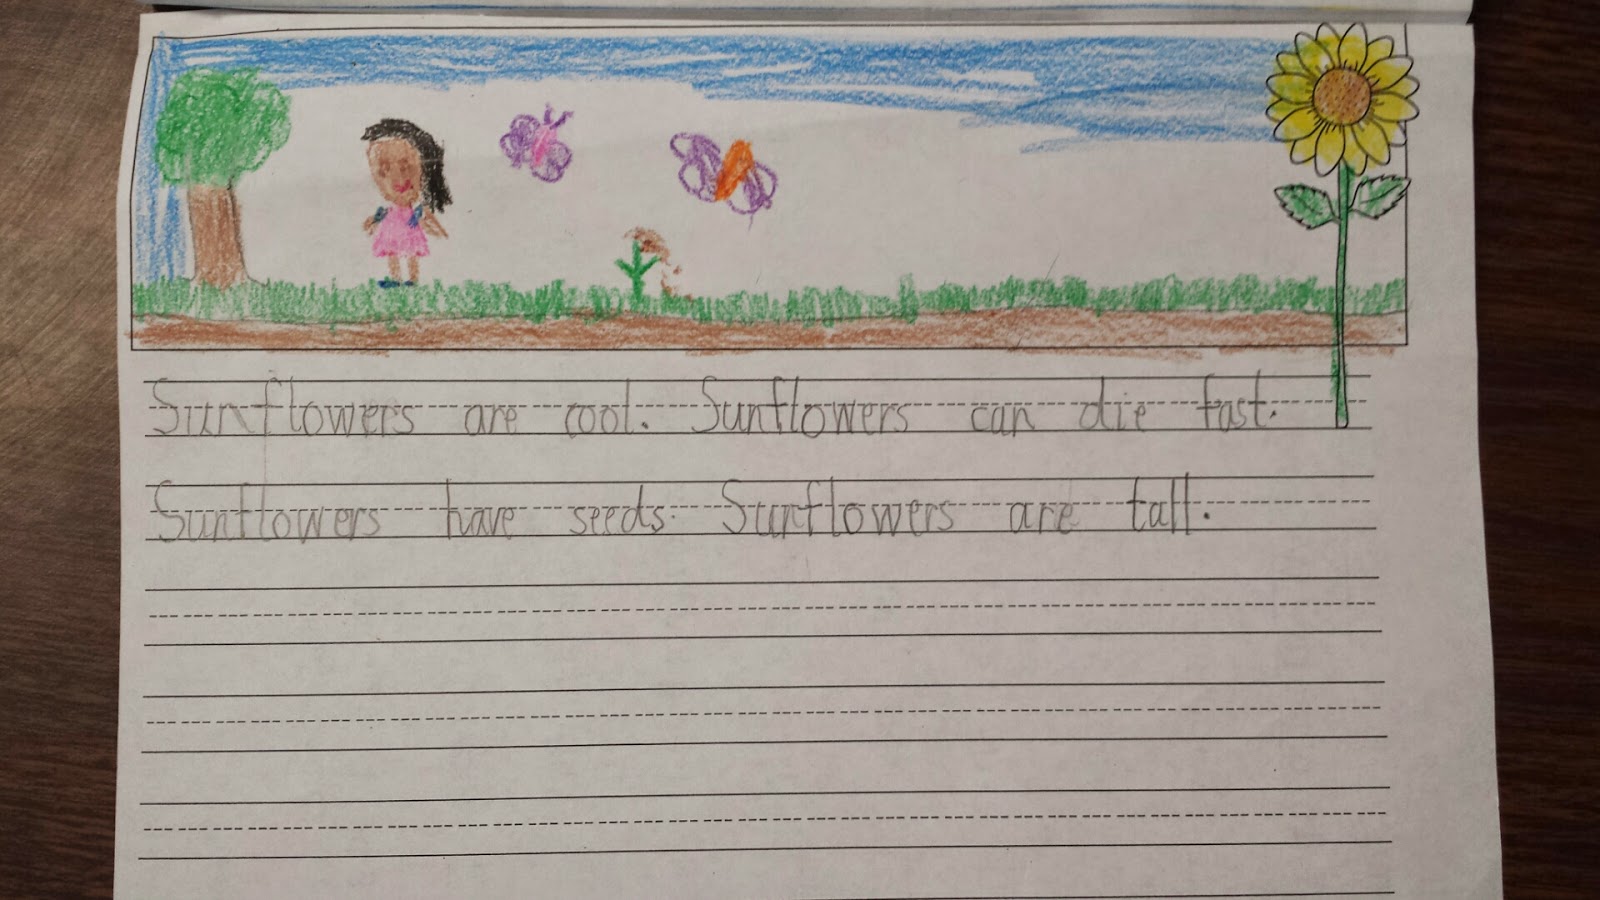 Sunflowers are cool. Sunflowers can die fast.
Sunflowers have seeds. Sunflowers are tall.